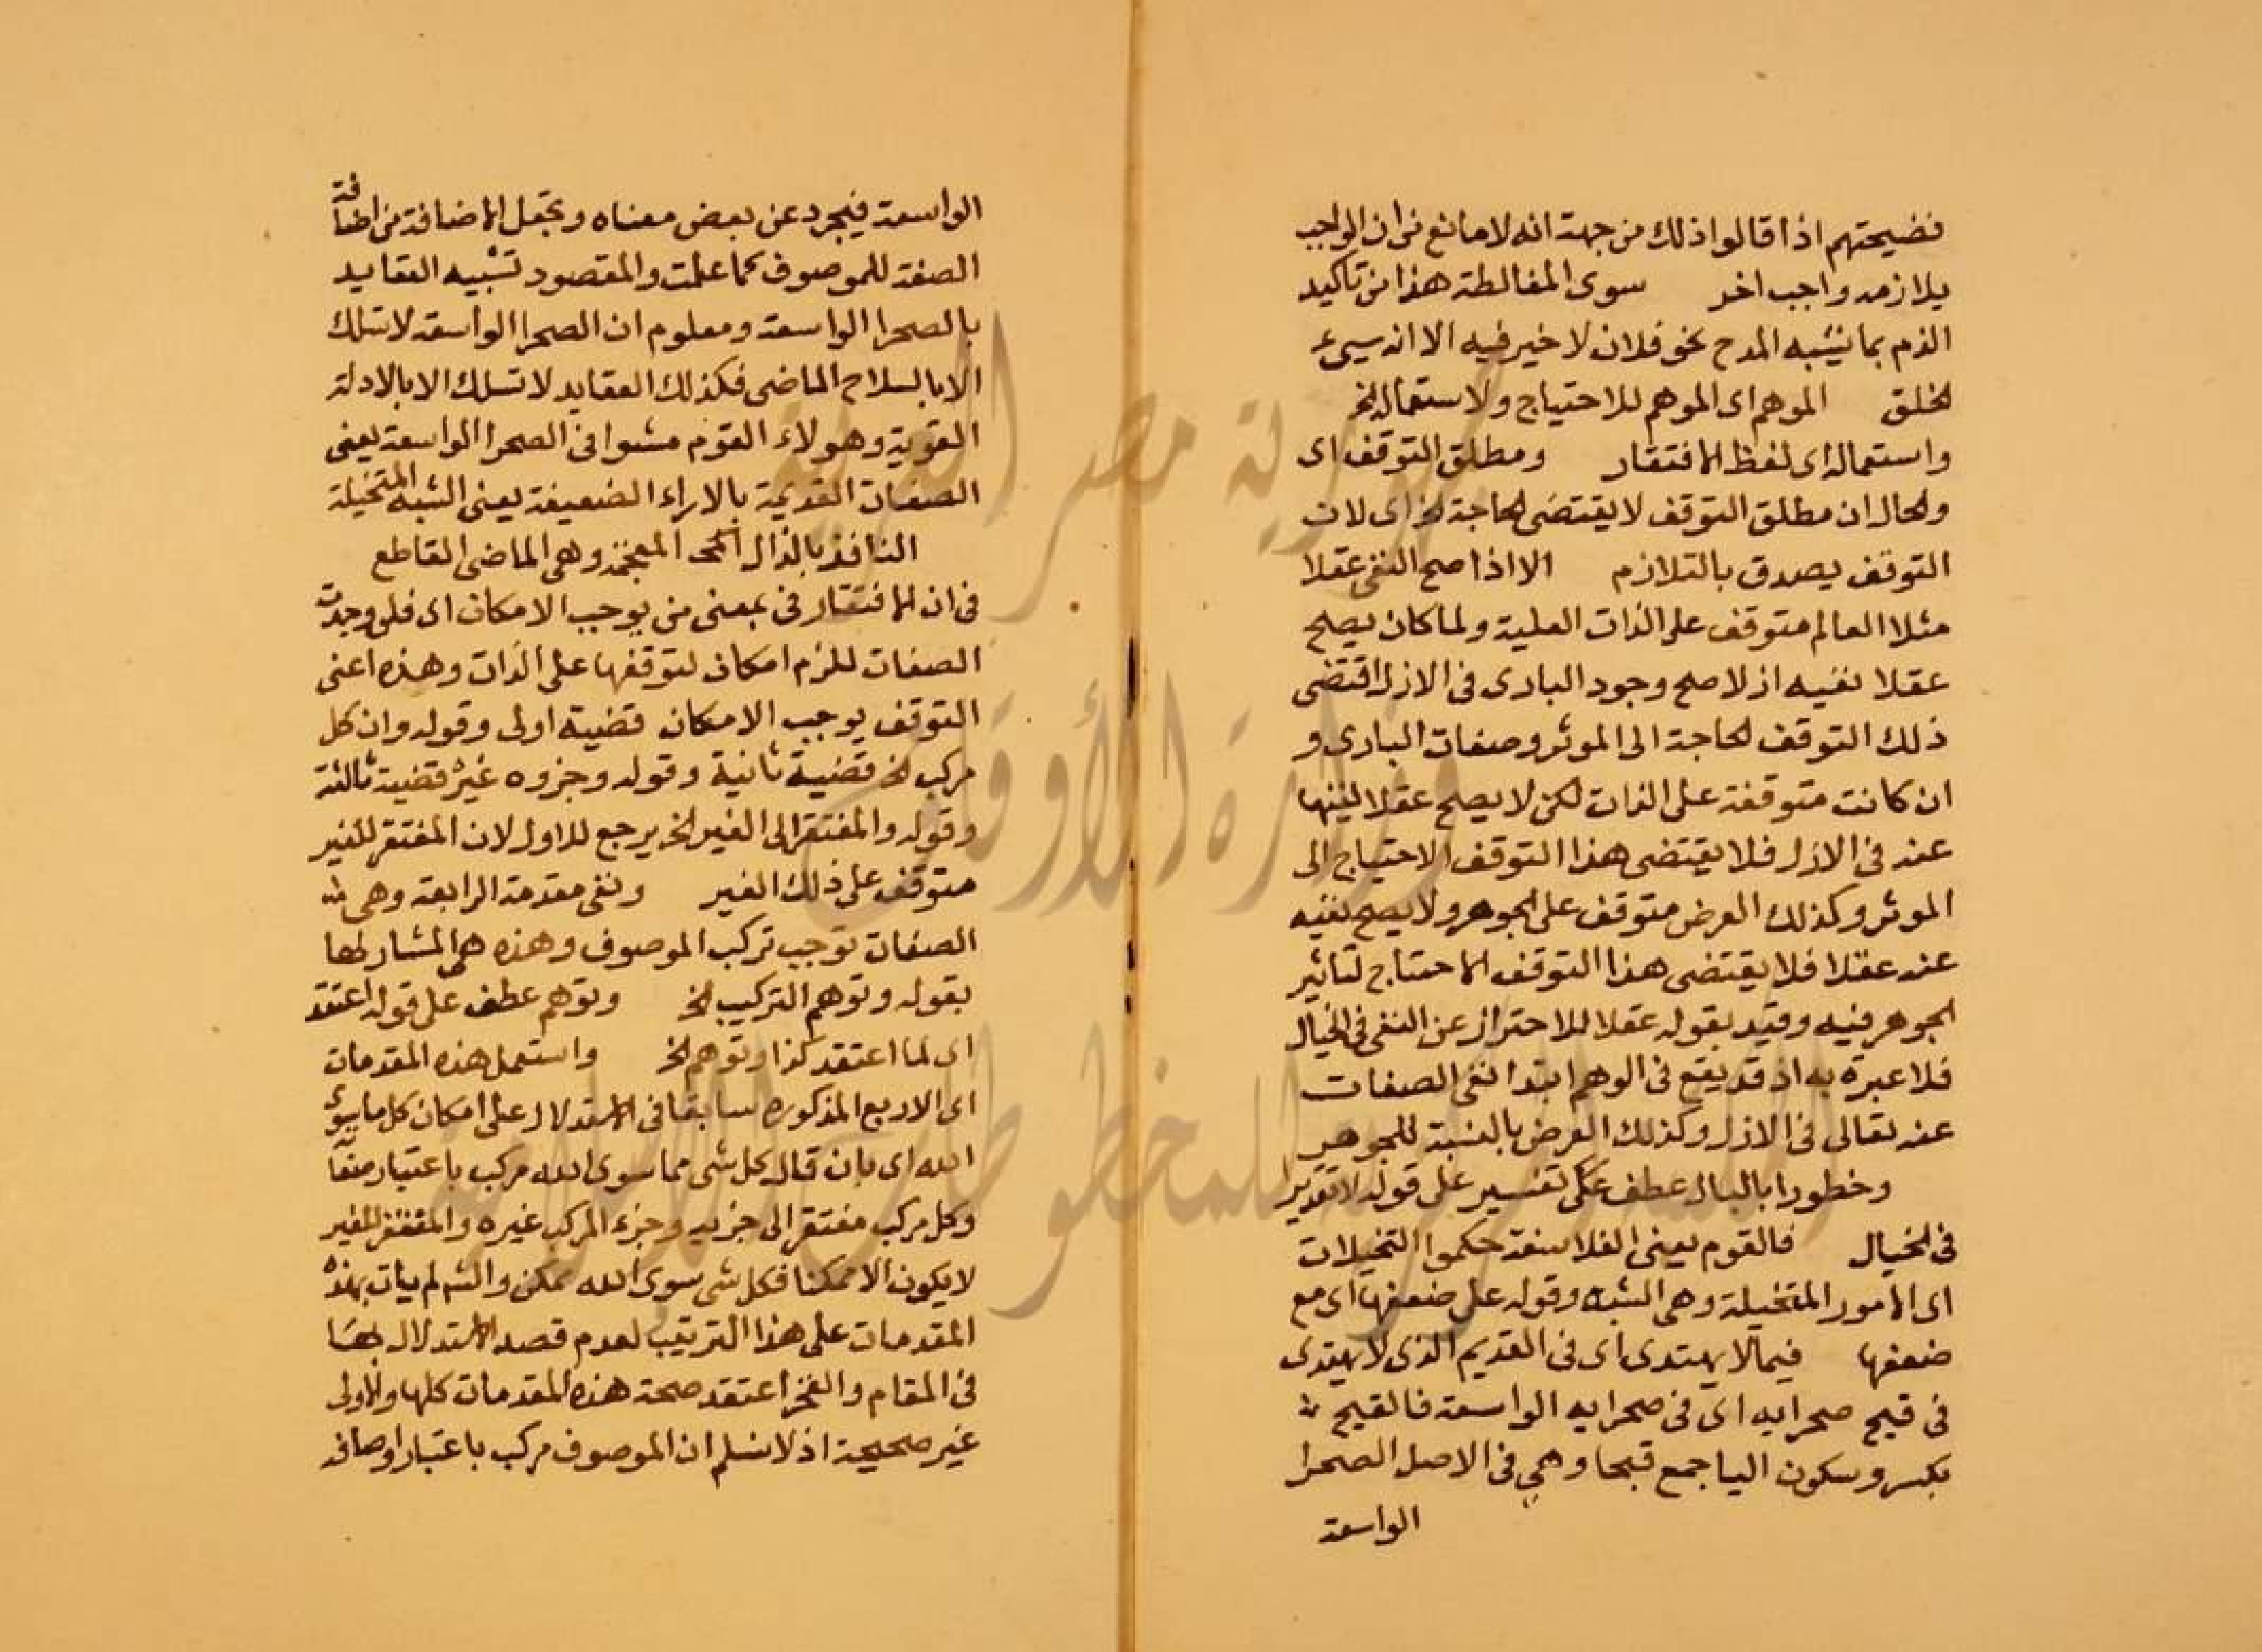 فضيحتهم اذا قالوا ذلك من جهة انه لا مانع من ان الواجب
يلازمه واجب اخر سوى المغالطة هذا من تاكيد
الذم بما يشبه المدح نحو فلان لا خير فيه الا انه سيىء
الخلق الموهم اى الموهم للاحتياج ولاستعماله الخ
واستعماله اى لفظ الافتقار ومطلق التوقف اى
والحال ان مطلق التوقف لا يقتضى الحاجة الخ اى لان
التوقف يصدق بالتلازم الا اذا صح النفى عقلا
مثلا العالم متوقف على الذات العلية ولما كان يصح
عقلا نفيه اذ لا صح وجود البارى فى الازل اقتضى
ذلك التوقف الحاجة الى الموثر وصفات البارى و
ان كانت متوقفة على الذات لكن لا يصح عقلا نفيها
عنه فى الازل فلا يقتضى هذا التوقف الاحتياج الى
الموثر وكذلك العرض متوقف على الجوهر ولا يصح نفيه
عنه عقلا فلا يقتضى هذا التوقف الاحتياج لتاثير
الجوهر فيه وقيد بقوله عقلا للاحتراز عن النفى فى الخيال
فلا عبرة به اذ قد يقع فى الوهم ابتدا نفى الصفات
عنه تعالى فى الازل وكذلك العرض بالنسبة للجوهر
وخطورا بالبال عطف تفسير على قوله لا تقدير
فى الخيال فالقوم يعنى الفلاسفة حكموا التخيلات
اى الامور المتخيلة وهى الشبه وقوله على ضعفها اى مع
ضعفها فيما لا يهتدى اى فى القديم الذى لا يهتدى
فى قيح صحرايه اى فى صحرايه الواسعة فالقيح
بكسر وسكون اليا جمع قيحا وهى فى الاصل الصحرا
الواسعة
الواسعة فيجرد عن بعض معناه وتجعل الاضافة من اضافة
الصفة للموصوف كما علمت والمقصود تشبيه العقايد
بالصحرا الواسعة ومعلوم ان الصحرا الواسعة لا تسلك
الا بالسلاح الماضى فكذلك العقايد لا تسلك الا بالادلة
القوية وهولاء القوم مشوا فى الصحرا الواسعة يعنى
الصفات القديمة بالاراء الضعيفة يعنى الشبه المتخيلة
النافذ بالذال المعجمة وهى الماضى القاطع
فى ان الافتقار فى بمعنى من يوجب الامكان اى فلو وجدت
الصفات للزم امكان لتوقفها على الذات وهذه اعنى
التوقف يوجب الامكان قضية اولى وقوله وان كل
مركب الخ قضية ثانية وقوله وجزوه غيره قضية ثالثة
وقوله والمفتقر الى الغير الخ يرجع للاول لان المفتقر للغير
متوقف على ذلك الغير ونفى مقدمة الرابعة وهى
الصفات توجب تركب الموصوف وهذه هى المشار لها
بقوله وتوهم التركيب الخ وتوهم عطف على قوله اعتقد
اى لما اعتقد كذا وتوهم الخ واستعمل هذه المقدمات
اى الاربع المذكوره سابقا فى الاستدلال على امكان كل ما سوى
الله اى بان قال كل شى مما سوى الله مركب باعتبار صفاته
وكل مركب مفتقر الى جزيه وجزء المركب غيره والمفتقر للغير
لا يكون الا ممكنا فكل شى سوى الله ممكن والشم لم يات بهذه
المقدمات على هذا الترتيب لعدم قصد الاستدلال بها
فى المقام والفخر اعتقد صحة هذه المقدمات كلها والاولى
غير صحيحة اذ لا نسلم ان الموصوف مركب باعتبار اوصافه
جمهورية مصر العربية
وزارة الأوقاف
للمخطوطات الإسلامية